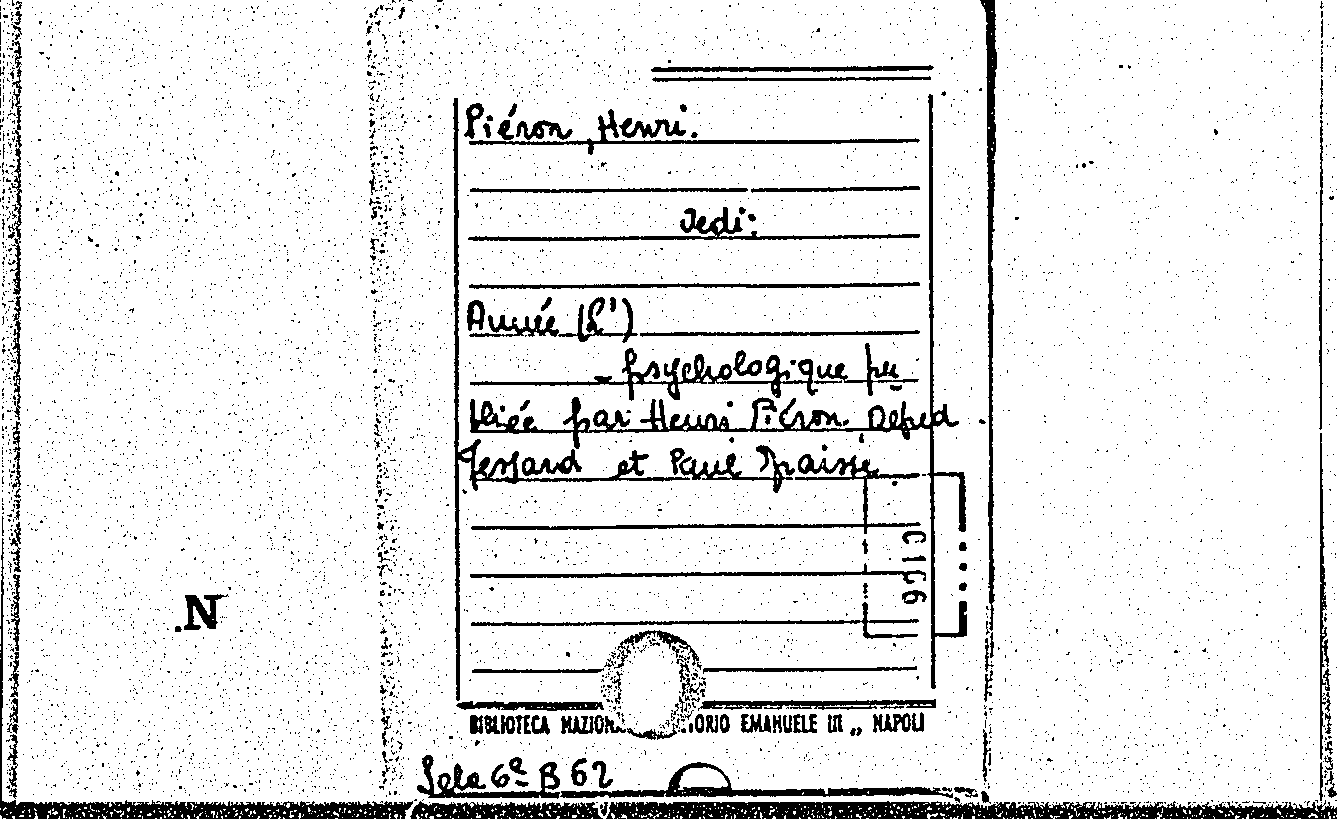 Piéron, Henri.
Vedi:
Année (L')
- psychologique pu
bliée par Henri Piéron Alfred
Fessard et Paul Fraisse
C166
N.
BIBLIOTECA NAZION ORIO EMANUELE III „ NAPOLI
Sala 6ª B 62